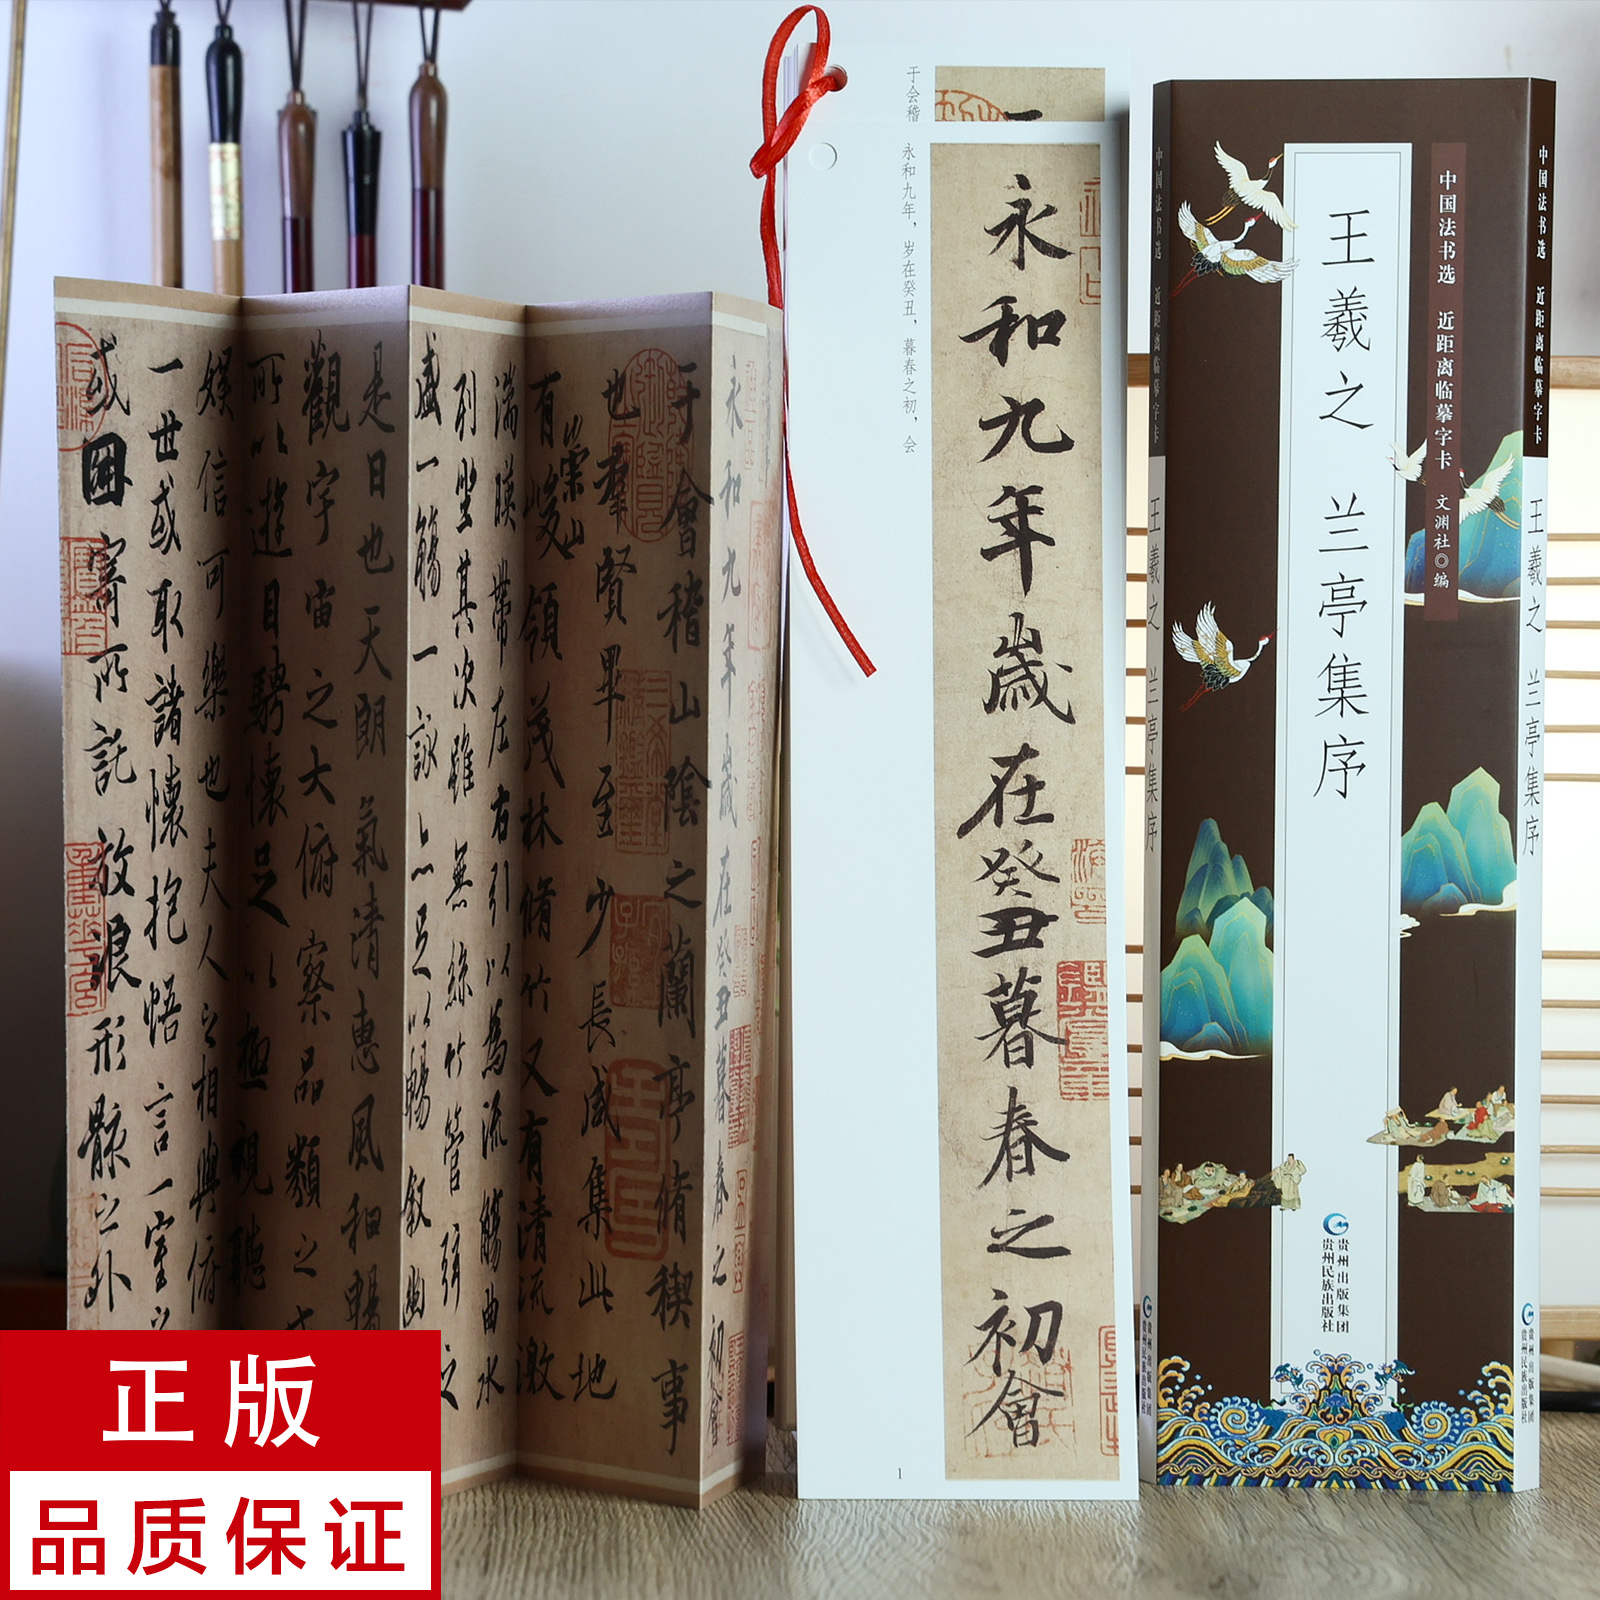 永和九年歲在癸丑暮春之初會
于會稽山陰之蘭亭脩禊事
也羣賢畢至少長咸集此地
有崇山峻領茂林脩竹又有清流激
湍暎帶左右引以為流觴曲水
列坐其次雖無絲竹管弦之
盛一觴一詠亦足以暢敘幽
是日也天朗氣清惠風和暢
觀宇宙之大俯察品類之
所以遊目騁懷足以極視聽
娛信可樂也夫人之相與俯
一世或取諸懷抱悟言一室之
或因寄所託放浪形骸之外
于会稽
永和九年，岁在癸丑，暮春之初，会
永和九年歲在癸丑暮春之初會
1
中国法书选 近距离临摹字卡
王羲之 兰亭集序
贵州出版集团
贵州民族出版社
中国法书选 近距离临摹字卡 文渊社◎编
王羲之 兰亭集序
贵州出版集团
贵州民族出版社
中国法书选 近距离临摹字卡
王羲之 兰亭集序
贵州出版集团
贵州民族出版社
正版
品质保证